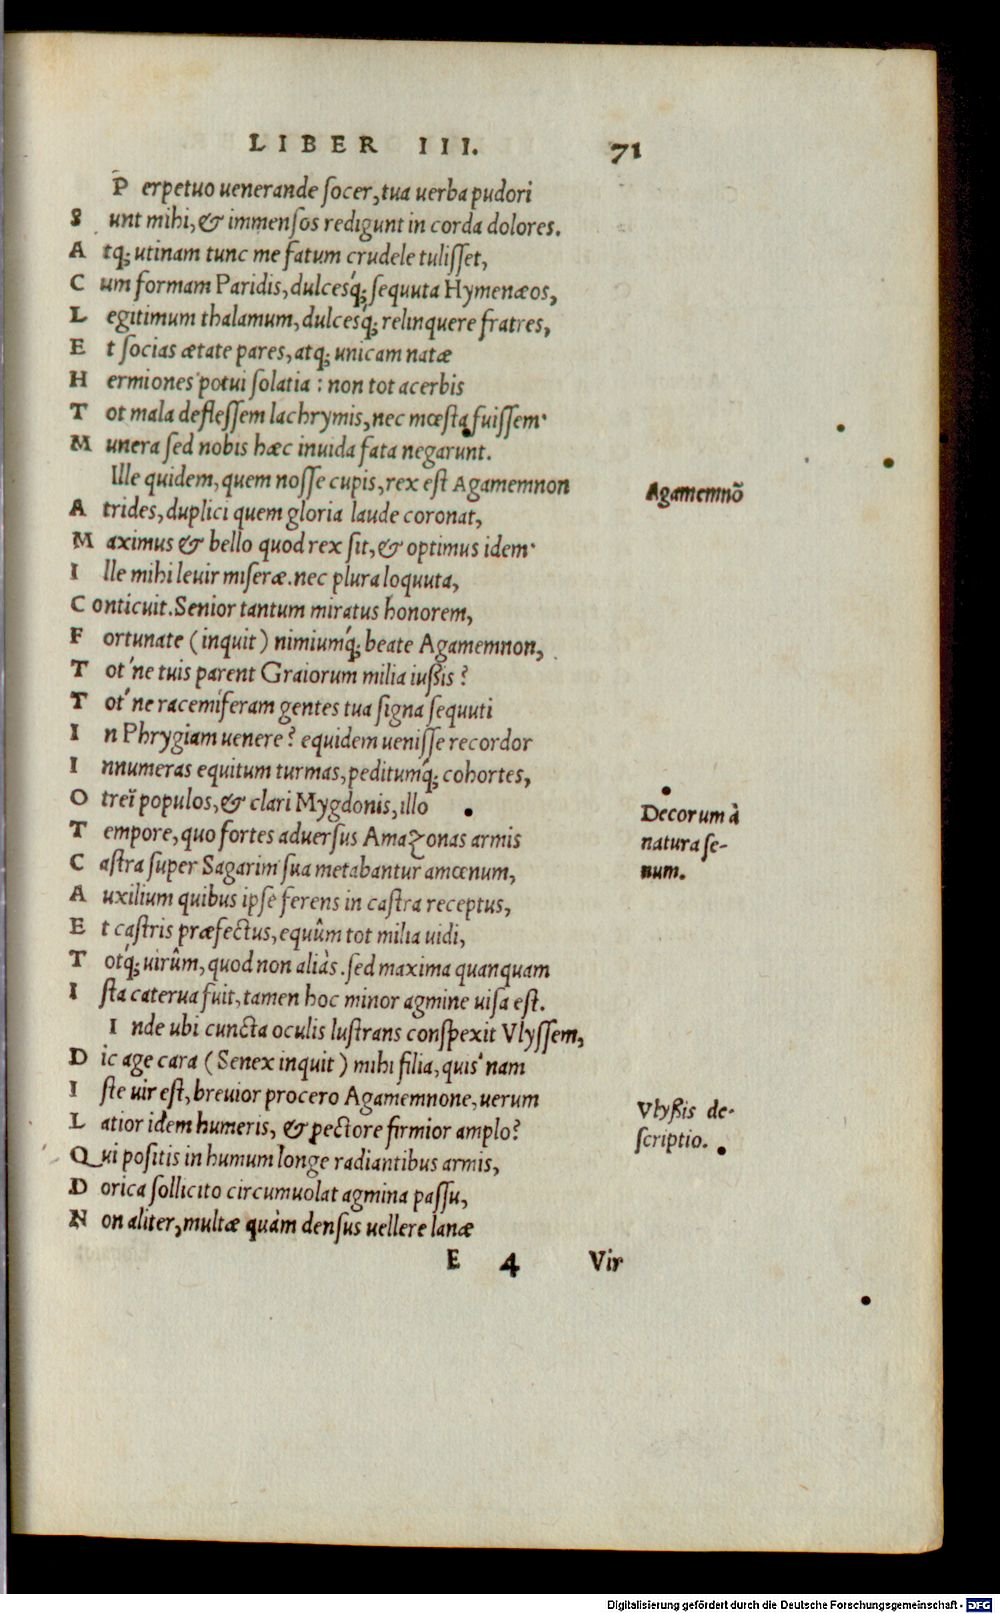 LIBER III. 71
Perpetuo uenerande ſocer, tua uerba pudori
Sunt mihi, & immenſos redigunt in corda dolores.
Atq; utinam tunc me fatum crudele tuliſſet,
Cum formam Paridis, dulcesq́; ſequuta Hymenæos,
Legitimum thalamum, dulcesq́; relinquere fratres,
Et ſocias ætate pares, atq; unicam natæ
Hermiones potui ſolatia: non tot acerbis
Tot mala defleſſem lachrymis, nec mœſta fuiſſem.
Munera ſed nobis hæc inuida fata negarunt.
Ille quidem, quem noſſe cupis, rex eſt Agamemnon
Agamemnõ
Atrides, duplici quem gloria laude coronat,
Maximus & bello quod rex ſit, & optimus idem.
Ille mihi leuir miſeræ. nec plura loquuta,
Conticuit. Senior tantum miratus honorem,
Fortunate (inquit) nimiumq́; beate Agamemnon,
Tot'ne tuis parent Graiorum milia iußis?
Tot'ne racemiferam gentes tua ſigna ſequuti
In Phrygiam uenere? equidem ueniſſe recordor
Innumeras equitum turmas, peditumq́; cohortes,
Otreï populos, & clari Mygdonis, illo
Decorum à
Tempore, quo fortes aduerſus Amazonas armis
natura ſe-
Caſtra ſuper Sagarim ſua metabantur amœnum,
num.
Auxilium quibus ipſe ferens in caſtra receptus,
Et caſtris præfectus, equûm tot milia uidi,
Totq́; uirûm, quod non aliàs. ſed maxima quanquam
Iſta caterua fuit, tamen hoc minor agmine uiſa eſt.
Inde ubi cuncta oculis luſtrans conſpexit Vlyſſem,
Dic age cara (Senex inquit) mihi filia, quis'nam
Iſte uir eſt, breuior procero Agamemnone, uerum
Vlyßis de-
Latior idem humeris, & pectore firmior amplo?
ſcriptio.
Qui poſitis in humum longe radiantibus armis,
Dorica ſollicito circumuolat agmina paſſu,
Non aliter, multæ quàm denſus uellere lanæ
E 4 Vir
Digitalisierung gefördert durch die Deutsche Forschungsgemeinschaft - DFG